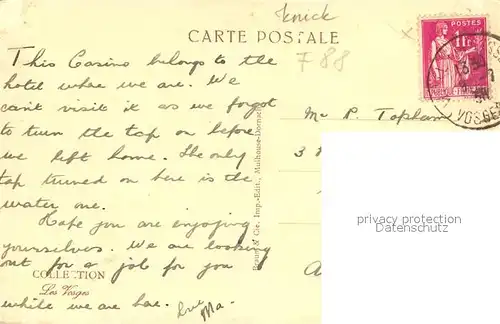 knick
CARTE POSTALE
F88
POSTES
1F
VOSGES
This Casino belongs to the
hotel where we are. We
can't visit it as we forgot
to turn the tap on before
we left home. The only
tap turned on here is the
water one.
Hope you are enjoying
yourselves. We are looking
out for a job for you
while we are here. love Ma.
COLLECTION
Les Vosges
Braun & Cie, Imp.-Édit., Mulhouse-Dornach
Mr P. Toplam
3
privacy protection
Datenschutz